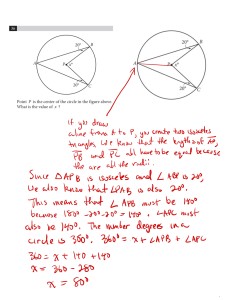 20
20°
B
A
P
x°
20°
C
20°
B
A
P
x°
20°
C
Point P is the center of the circle in the figure above.
What is the value of x ?
If you draw
a line from A to P, you create two isosceles
triangles. We know that the lengths of AP,
PB and PC all have to be equal because
they are all the radii.
Since △APB is isosceles and ∠ABP is 20°
we also know that ∠PAB is also 20°.
This means that ∠APB must be 140°
because 180°-20°-20°=140°. ∠APC must
also be 140°. The number degrees in a
circle is 360°. 360° = x + ∠APB + ∠APC
360 = x + 140 + 140
x = 360 - 280
x = 80°